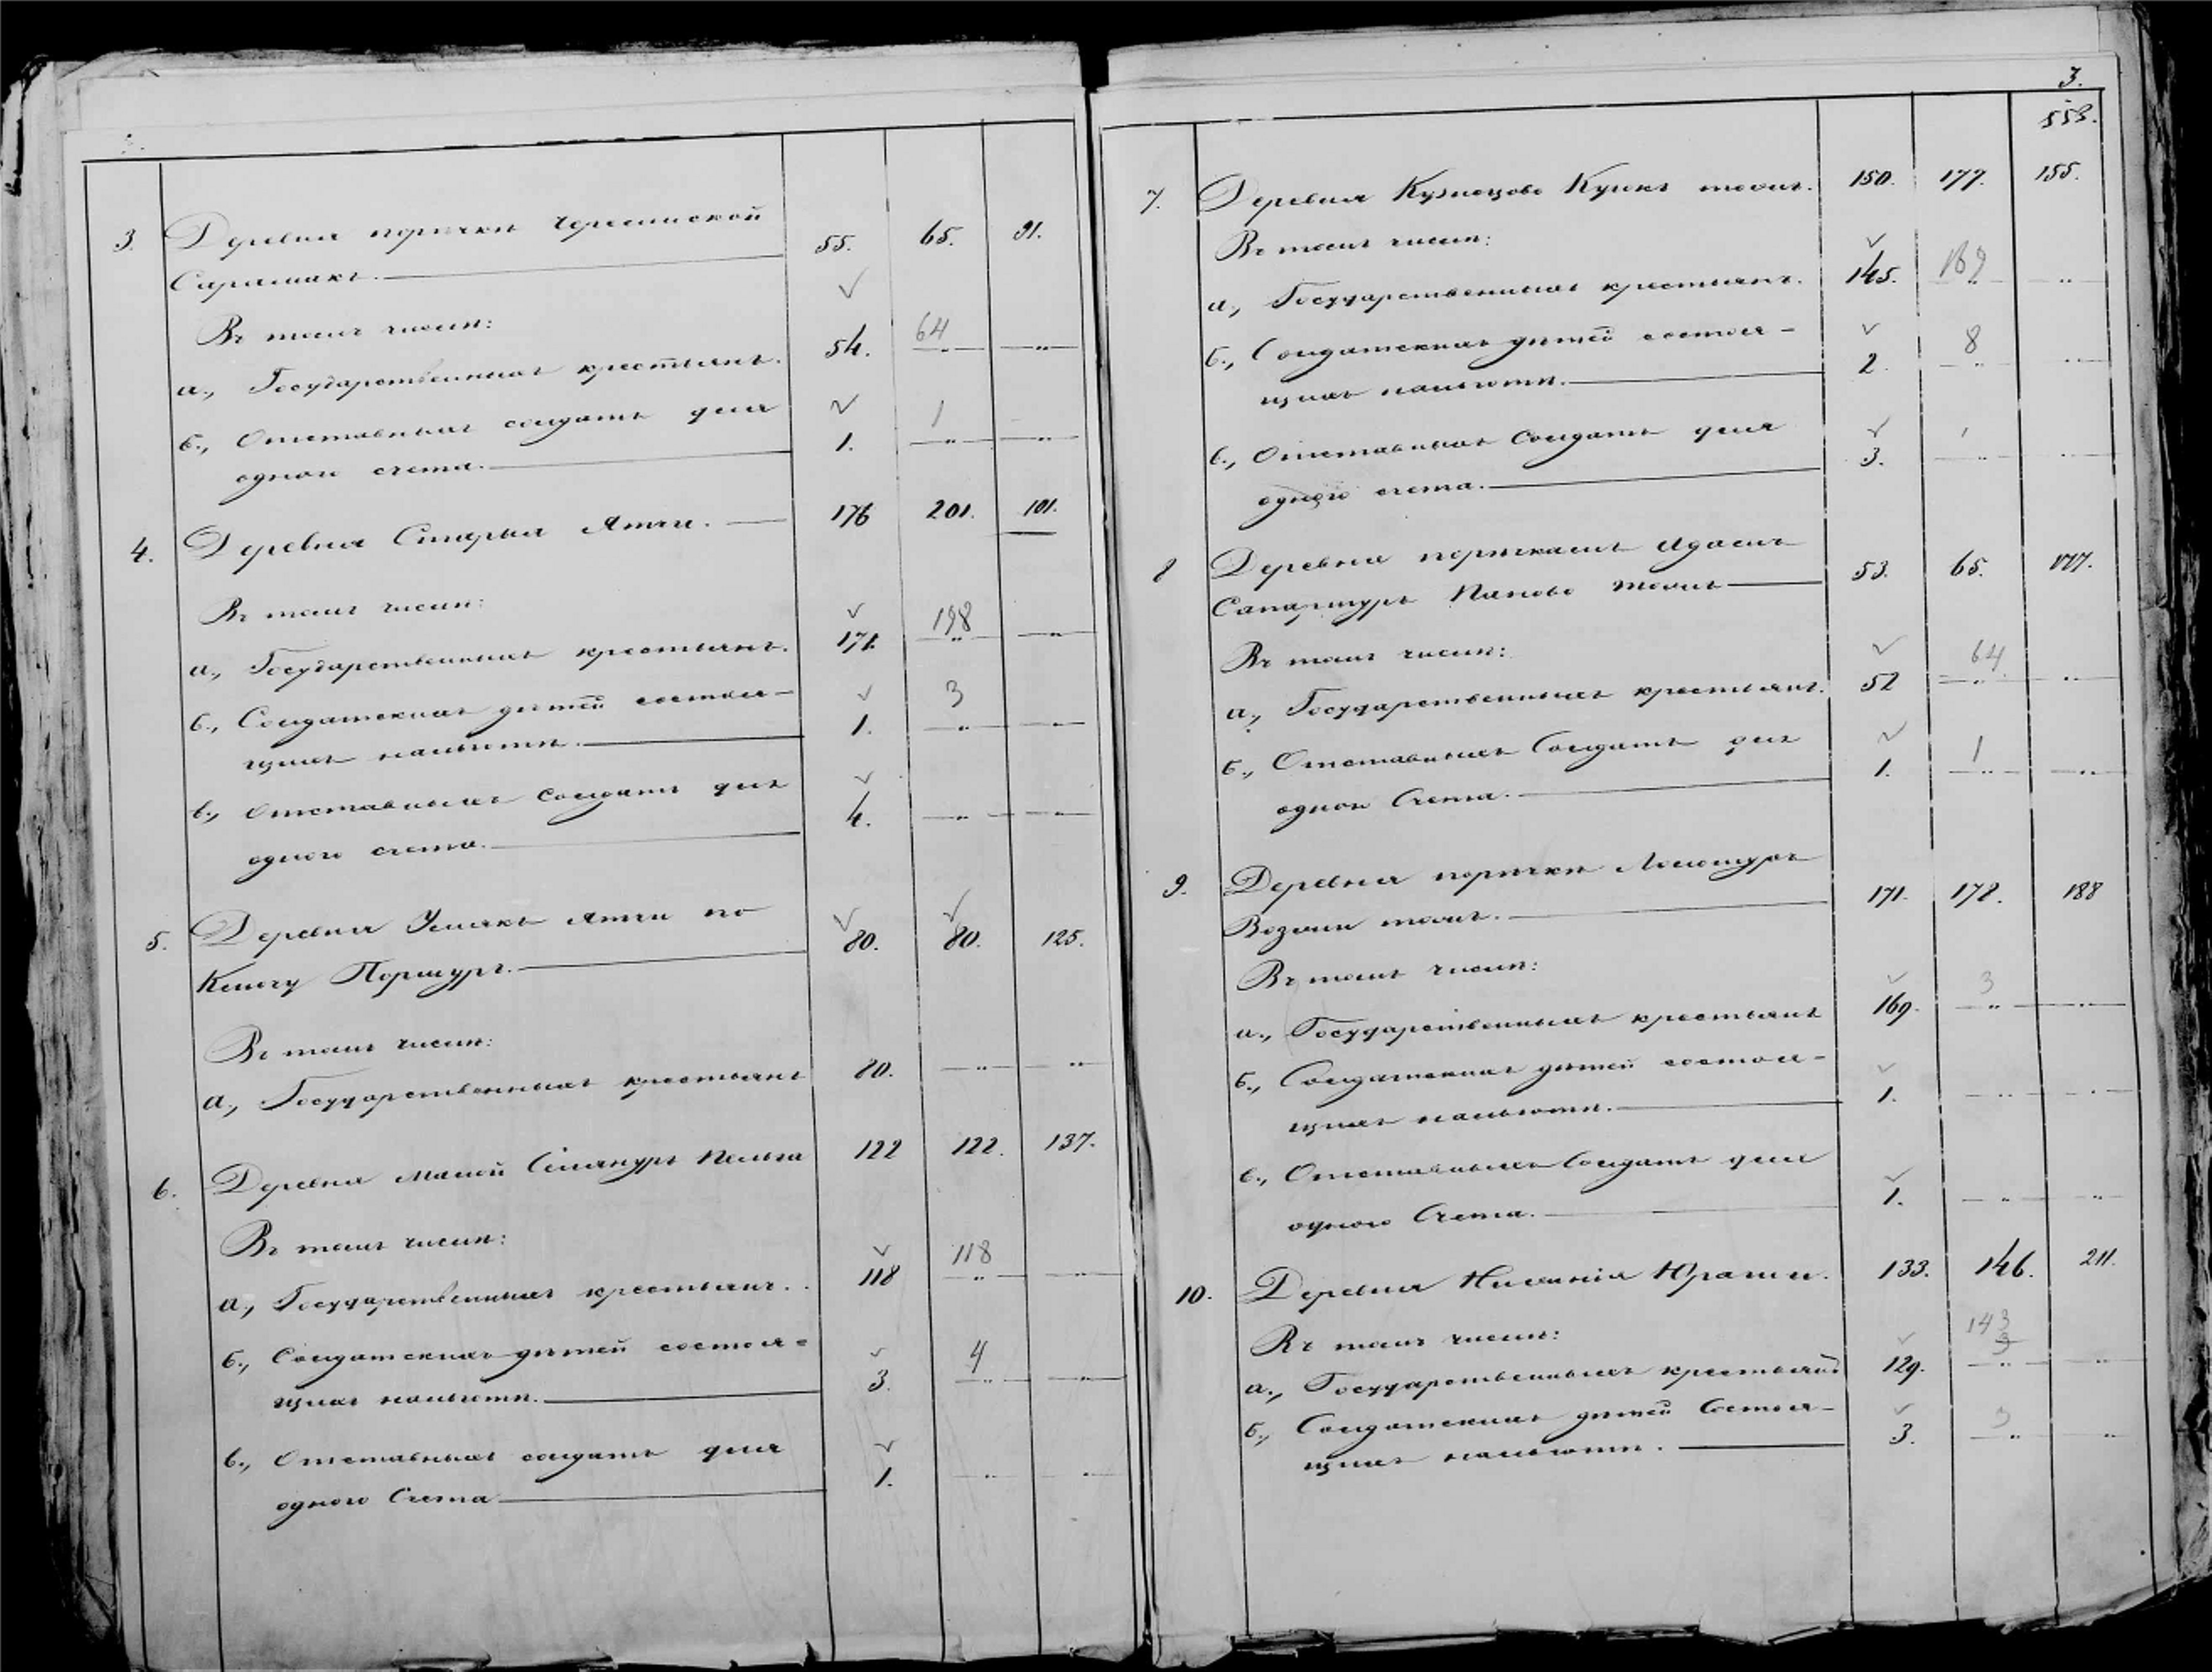 3. Деревня поръчки Черемиской 55. 65. 91.
Сарамакъ.
Въ томъ числѣ:
а., Государственныхъ крестьянъ. 54. 64
б., Отставныхъ солдатъ для 1. 1
одного счета.
4. Деревня Старыя Ятчи. 176 201. 101.
Въ томъ числѣ:
а., Государственныхъ крестьянъ. 171. 198
б., Солдатскихъ дѣтей состоя- 1. 3
щихъ на льготѣ.
в., Отставныхъ солдатъ для 4.
одного счета.
5. Деревня Ятчи по 80. 80. 125.
Ключу Поршуръ.
Въ томъ числѣ:
а., Государственныхъ крестьянъ 80.
6. Деревня Малой Пельга 122 122. 137.
Въ томъ числѣ:
а., Государственныхъ крестьянъ. 118 118
б., Солдатскихъ дѣтей состоя- 3. 4
щихъ на льготѣ.
в., Отставныхъ солдатъ для 1.
одного Счета
3.
553.
7. Деревня Кузнецово тожъ. 150. 177. 155.
Въ томъ числѣ:
а., Государственныхъ крестьянъ. 145. 169
б., Солдатскихъ дѣтей состоя- 2. 8
щихъ на льготѣ.
в., Отставныхъ Солдатъ для 3.
одного счета.
8 Деревня 53. 65. 177.
Паново тожъ
Въ томъ числѣ:
а., Государственныхъ крестьянъ. 52 64
б., Отставныхъ Солдатъ для 1. 1
одного Счета.
9. Деревня поръчки 171. 172. 188
Возжи тожъ.
Въ томъ числѣ:
а., Государственныхъ крестьянъ 169. 3
б., Солдатскихъ дѣтей состоя- 1.
щихъ на льготѣ.
в., Отставныхъ Солдатъ для 1.
одного Счета.
10. Деревня Нижнія Юраши. 133. 146. 211.
Въ томъ числѣ:
а., Государственныхъ крестьянъ 129. 143
б., Солдатскихъ дѣтей Состоя- 3. 3
щихъ на льготѣ.